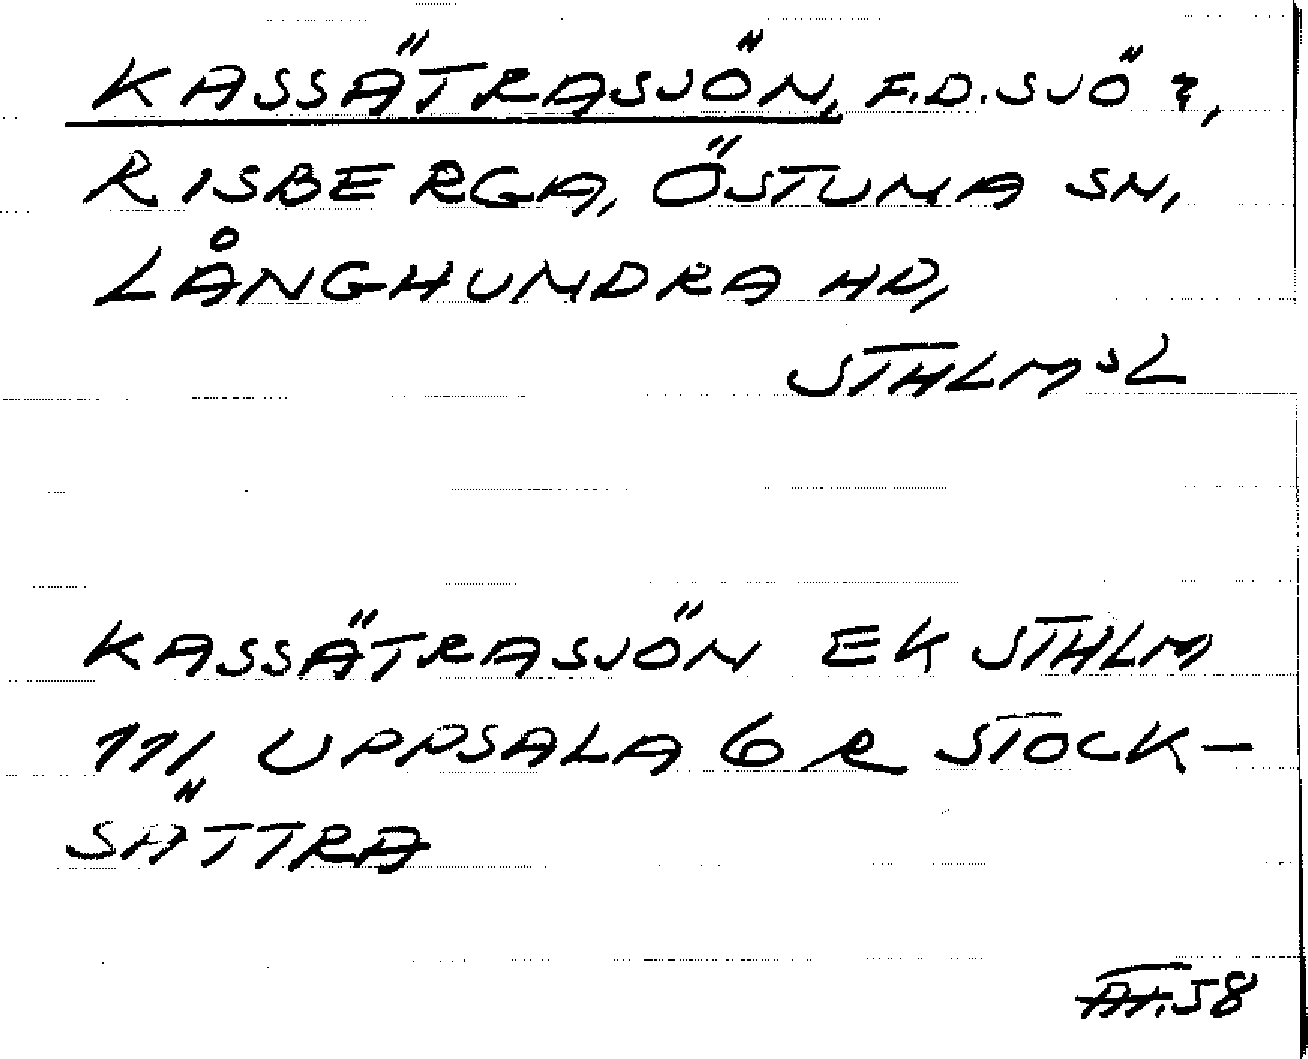 KASSÄTRASJÖN, F.D. SJÖ?,
RISBERGA, ÖSTUNA SN,
LÅNGHUNDRA HD,
STHLMS L
KASSÄTRASJÖN EK STHLM
111, UPPSALA 6 R STOCK-
SÄTTRA
58